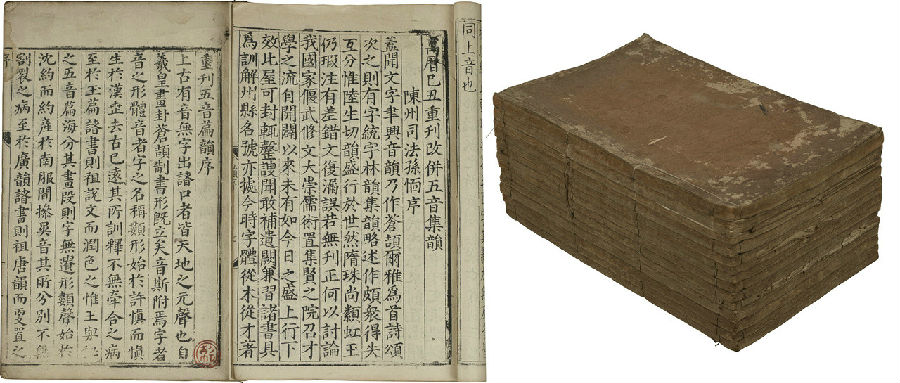 同上音也
萬曆己丑重刊改併五音集韻
陳州司法孫愐序
蓋聞文字聿興音韻乃作蒼頡爾雅為首詩頌
次之則有字統字林韻集韻略述作頗衆得失
互分惟陸生切韻盛行於世然隋珠尚纇虹玉
仍瑕注有差錯文復漏誤若無刊正何以討論
我國家偃武修文大崇儒術置集賢之院召才
學之流自開闢以來未有如今日之盛上行下
效比屋可封輒罄謏聞敢補遺闕兼習諸書具
為訓解州縣名號亦據今時字體從木從才著
重刊五音篇韻序
上古有音無字出諸口者皆天地之元聲也自
羲皇畫卦蒼頡制書形既立矣音斯附焉字者
音之形體音者字之名稱顧形始於許慎而慎
生於漢世去古已遠其所訓釋不無牽合之病
至於玉篇諸書則祖説文而潤色之惟王與
之五音篇海分其畫段則字無遺形類聲始於
沈約而約産於南服閒摻吳音其所分別不無
割裂之病至於廣韻諸書則祖唐韻而更置之